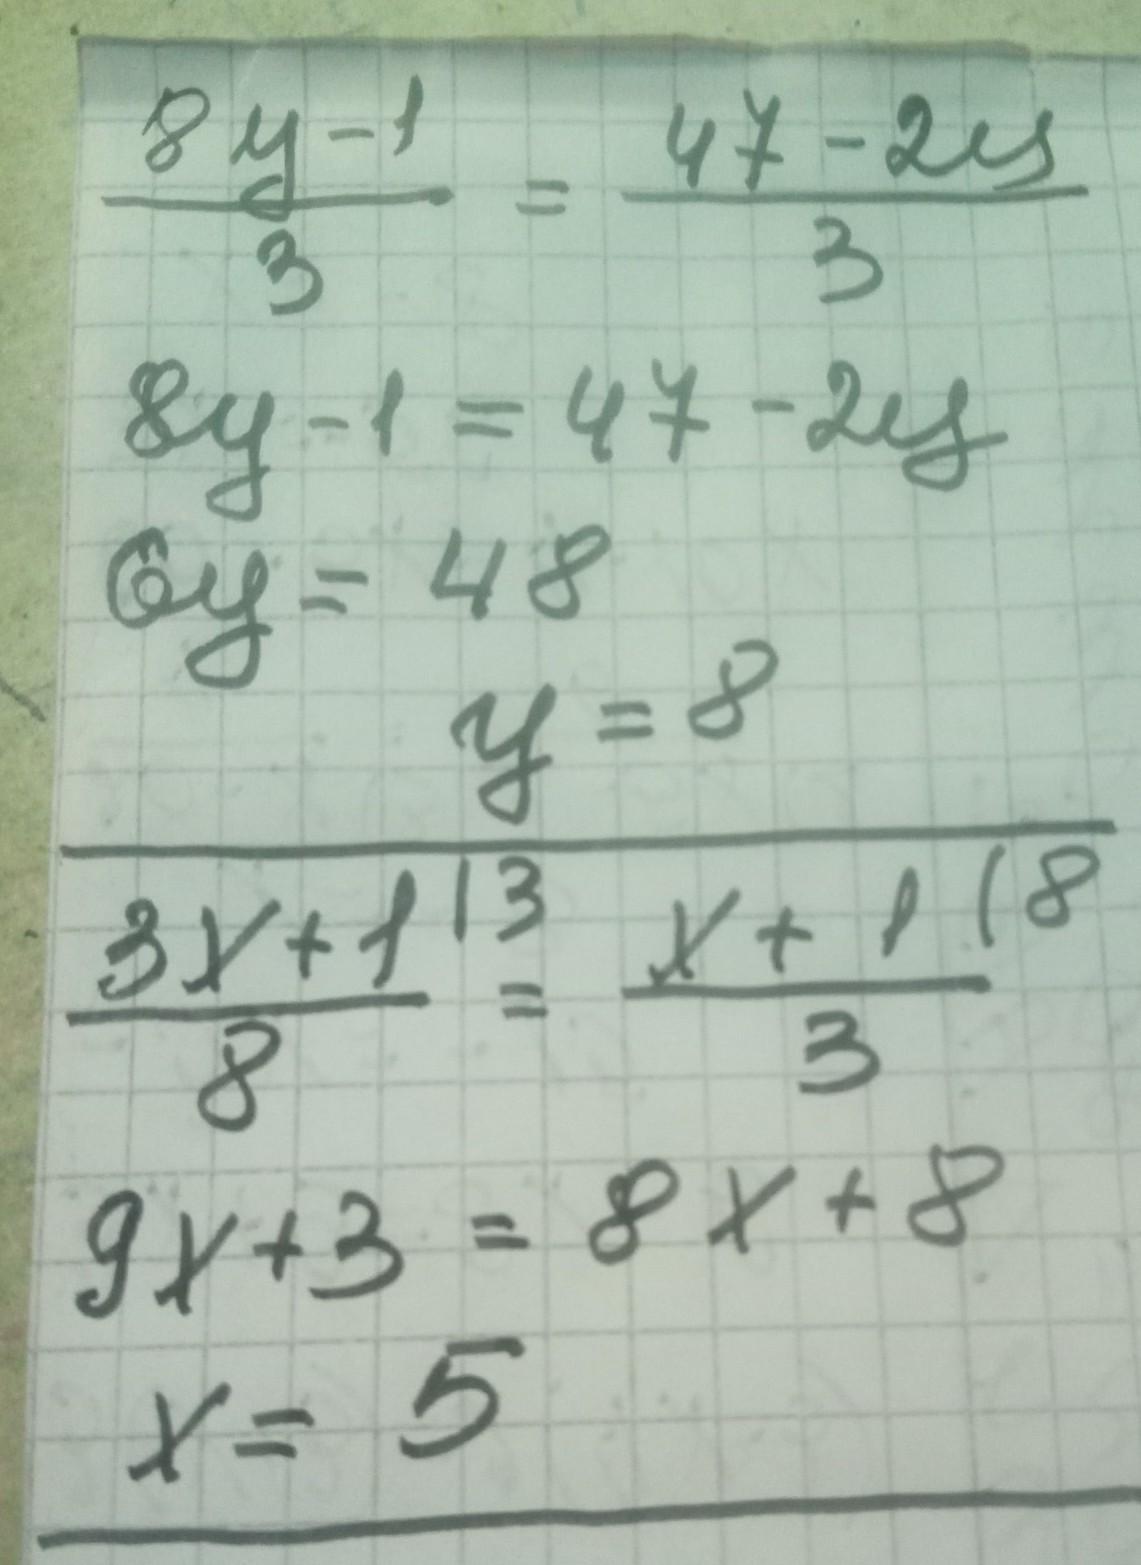 8y-1 = 47-2y
3 3
8y-1 = 47-2y
6y = 48
y = 8
3x+1 |3 = x+1 |8
8 3
9x+3 = 8x+8
x = 5